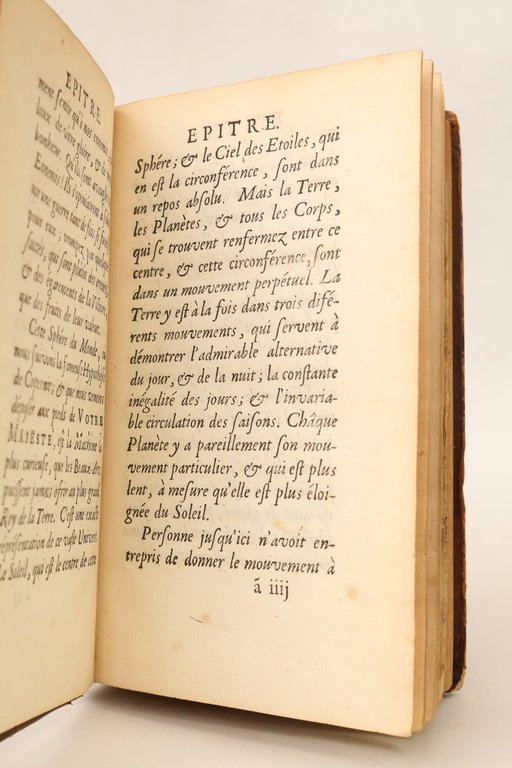 EPITRE
ment
de vôtre gloire, & de
bonheur.
Ennemis! Ils
sur une guerre
pour eux;
& des égaremens de la Victoire,
que des fruits de leur valeur.
Cette Sphére du Monde,
nous suivons la fameuse Hypothése
de Copernic, & que nous venons
déposer aux pieds de VOTRE
MAJESTÉ, est la Machine la
plus curieuse, que les Beaux-Arts
puissent jamais ofrir au plus grand
Roy de la Terre. C'est une exacte
représentation de ce vaste Univers.
Le Soleil, qui est le centre de cette
EPITRE.
Sphére; & le Ciel des Etoiles, qui
en est la circonférence, sont dans
un repos absolu. Mais la Terre,
les Planètes, & tous les Corps,
qui se trouvent renfermez entre ce
centre, & cette circonférence, sont
dans un mouvement perpétuel. La
Terre y est à la fois dans trois difé-
rents mouvements, qui servent à
démontrer l'admirable alternative
du jour, & de la nuit; la constante
inégalité des jours; & l'invaria-
ble circulation des saisons. Châque
Planète y a pareillement son mou-
vement particulier, & qui est plus
lent, à mesure qu'elle est plus éloi-
gnée du Soleil.
Personne jusqu'ici n'avoit en-
trepris de donner le mouvement à
ã iiij